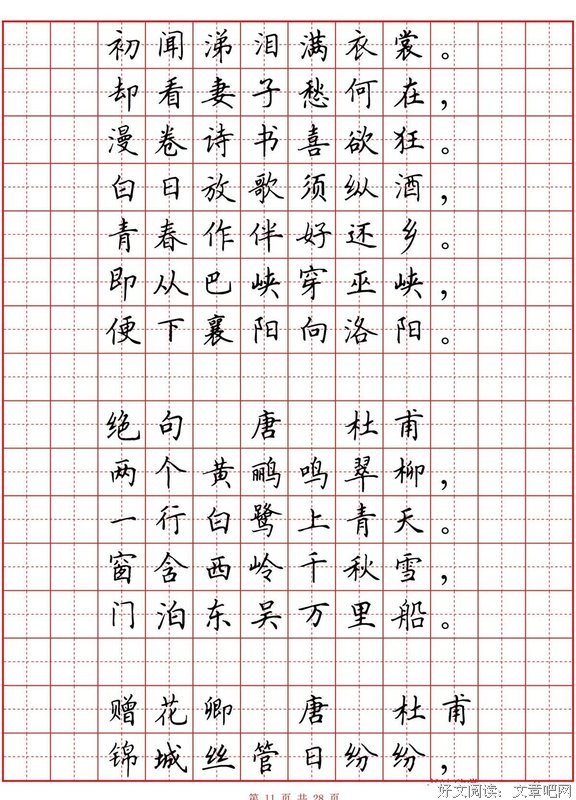 初闻涕泪满衣裳。
却看妻子愁何在，
漫卷诗书喜欲狂。
白日放歌须纵酒，
青春作伴好还乡。
即从巴峡穿巫峡，
便下襄阳向洛阳。
绝句 唐 杜甫
两个黄鹂鸣翠柳，
一行白鹭上青天。
窗含西岭千秋雪，
门泊东吴万里船。
赠花卿 唐 杜甫
锦城丝管日纷纷，
第 11 页 共 28 页
好文阅读：文章吧网